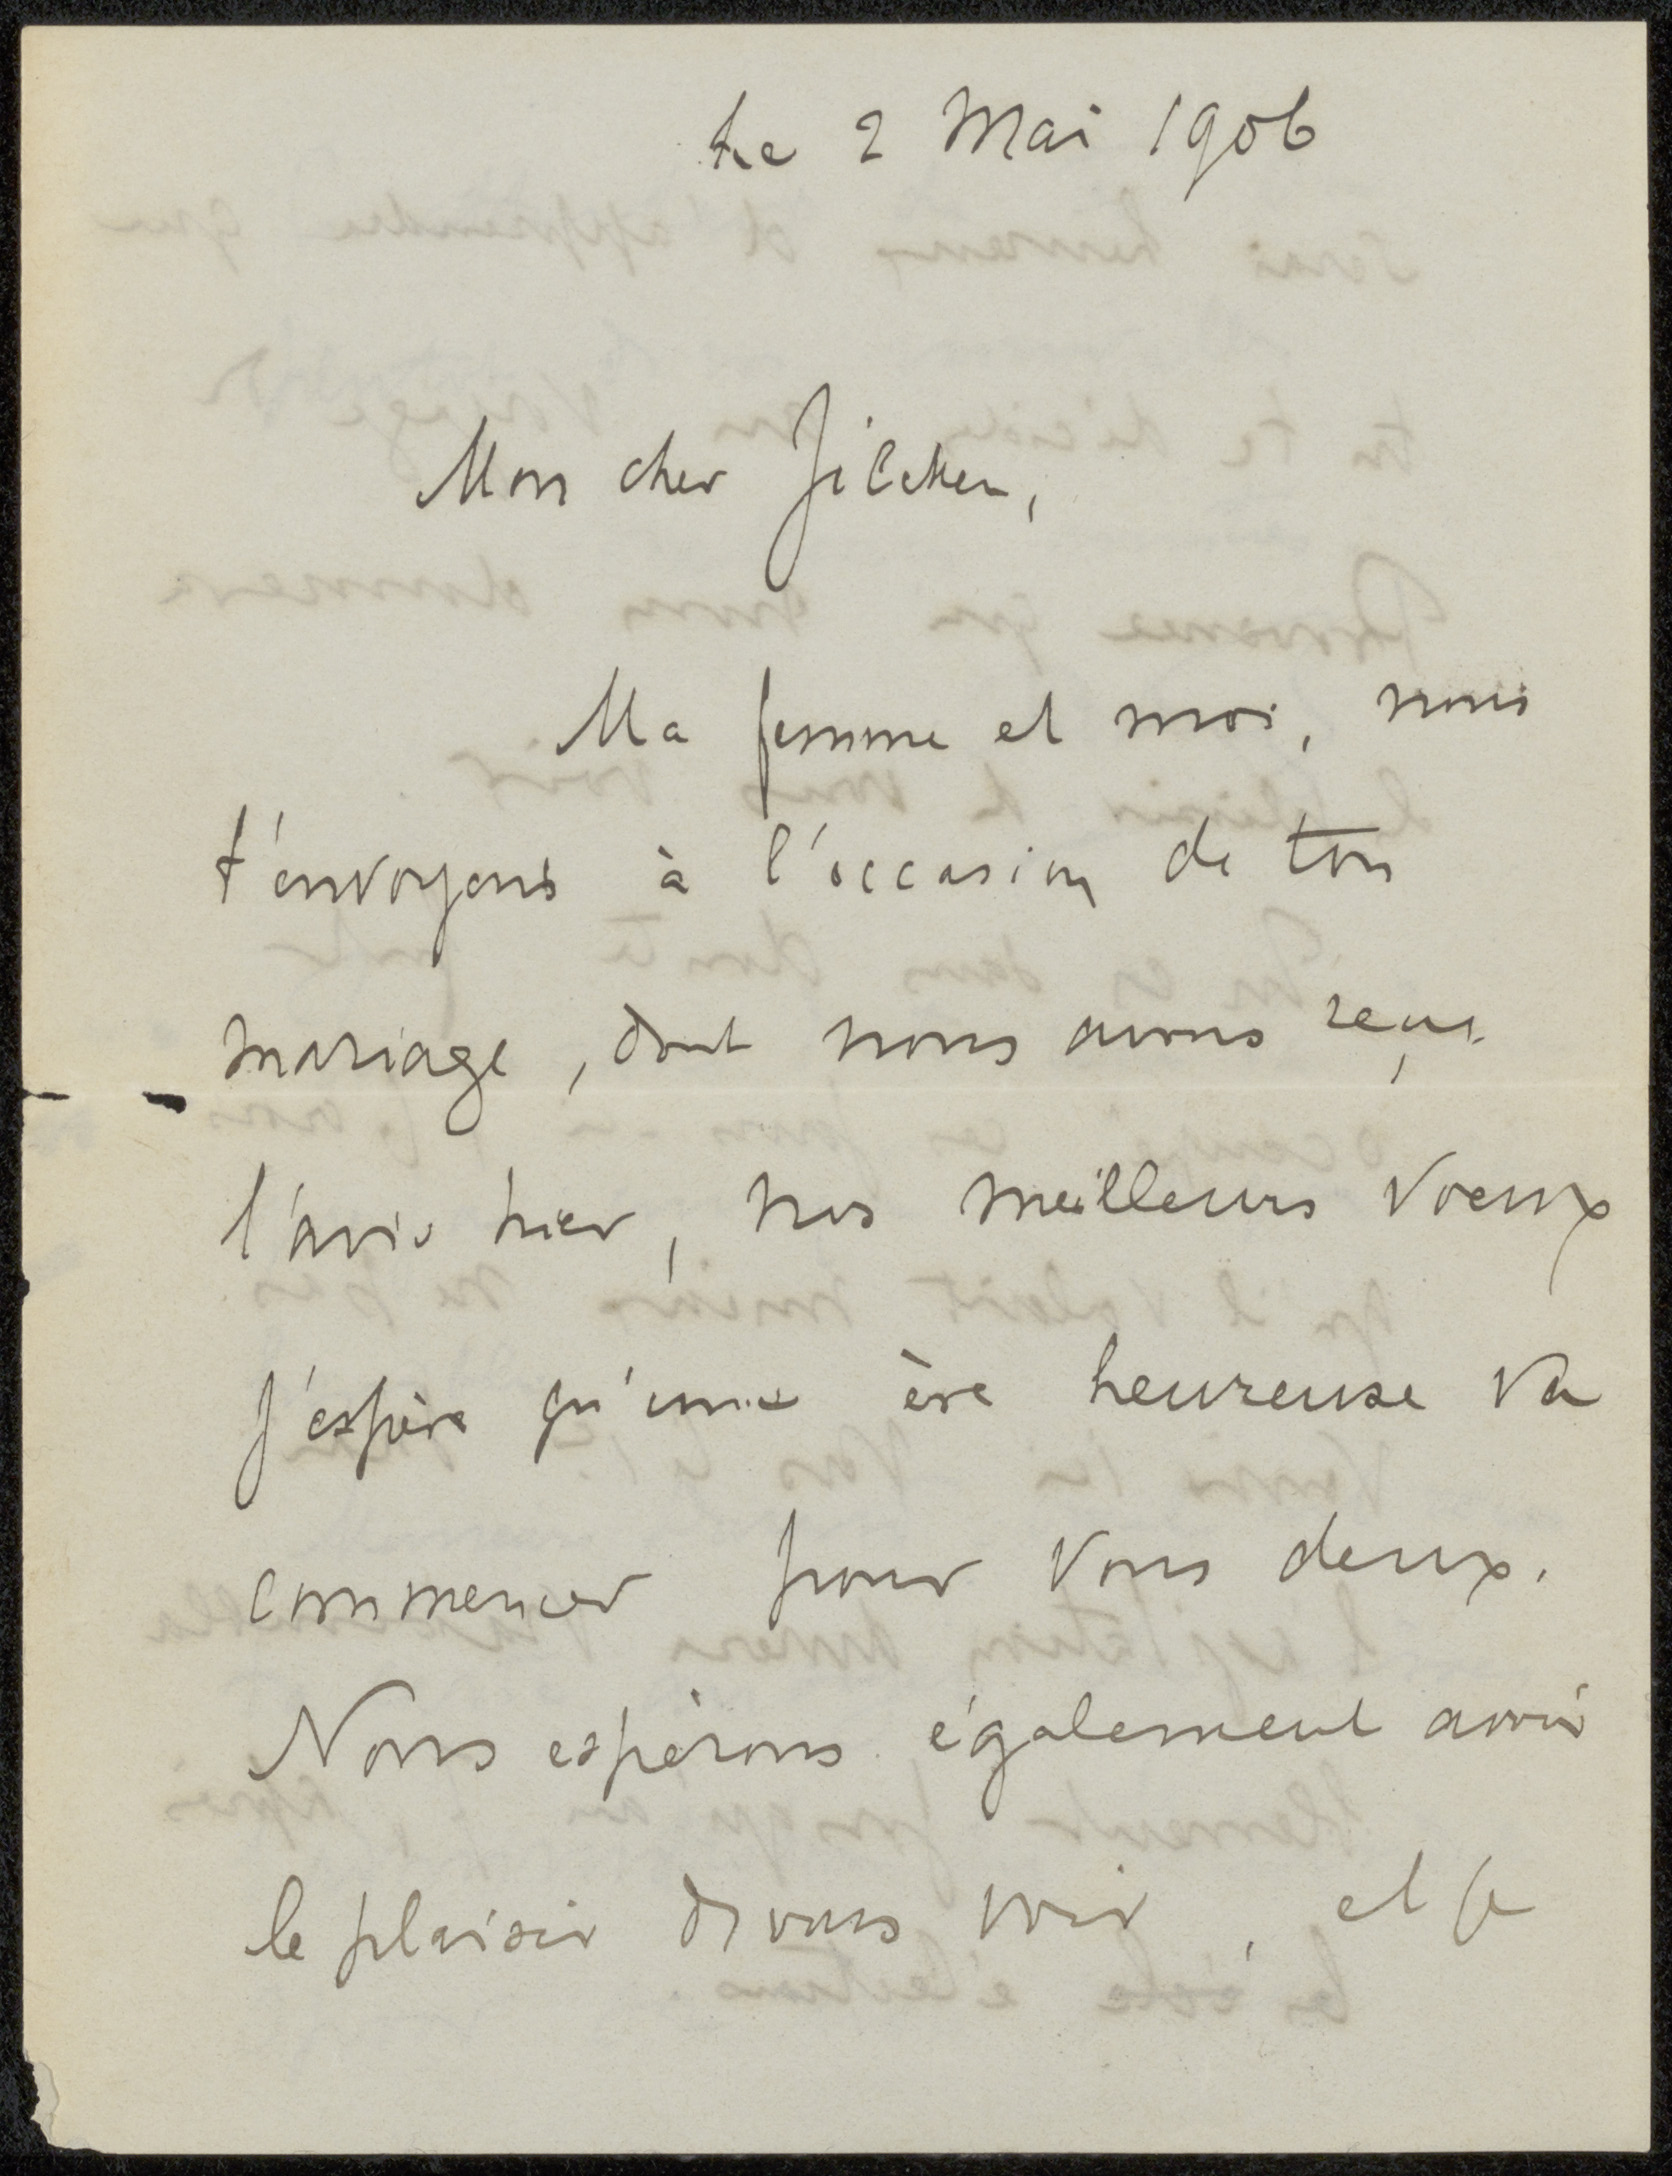 Le 2 Mai 1906
Mon cher Zilcken,
Ma femme et moi, nous
t'envoyons à l'occasion de ton
mariage, dont nous avons reçu
l'avis hier, nos meilleurs voeux
J'espère qu'une ère heureuse va
commencer pour vous deux.
Nous espérons également avoir
le plaisir de vous voir, et je